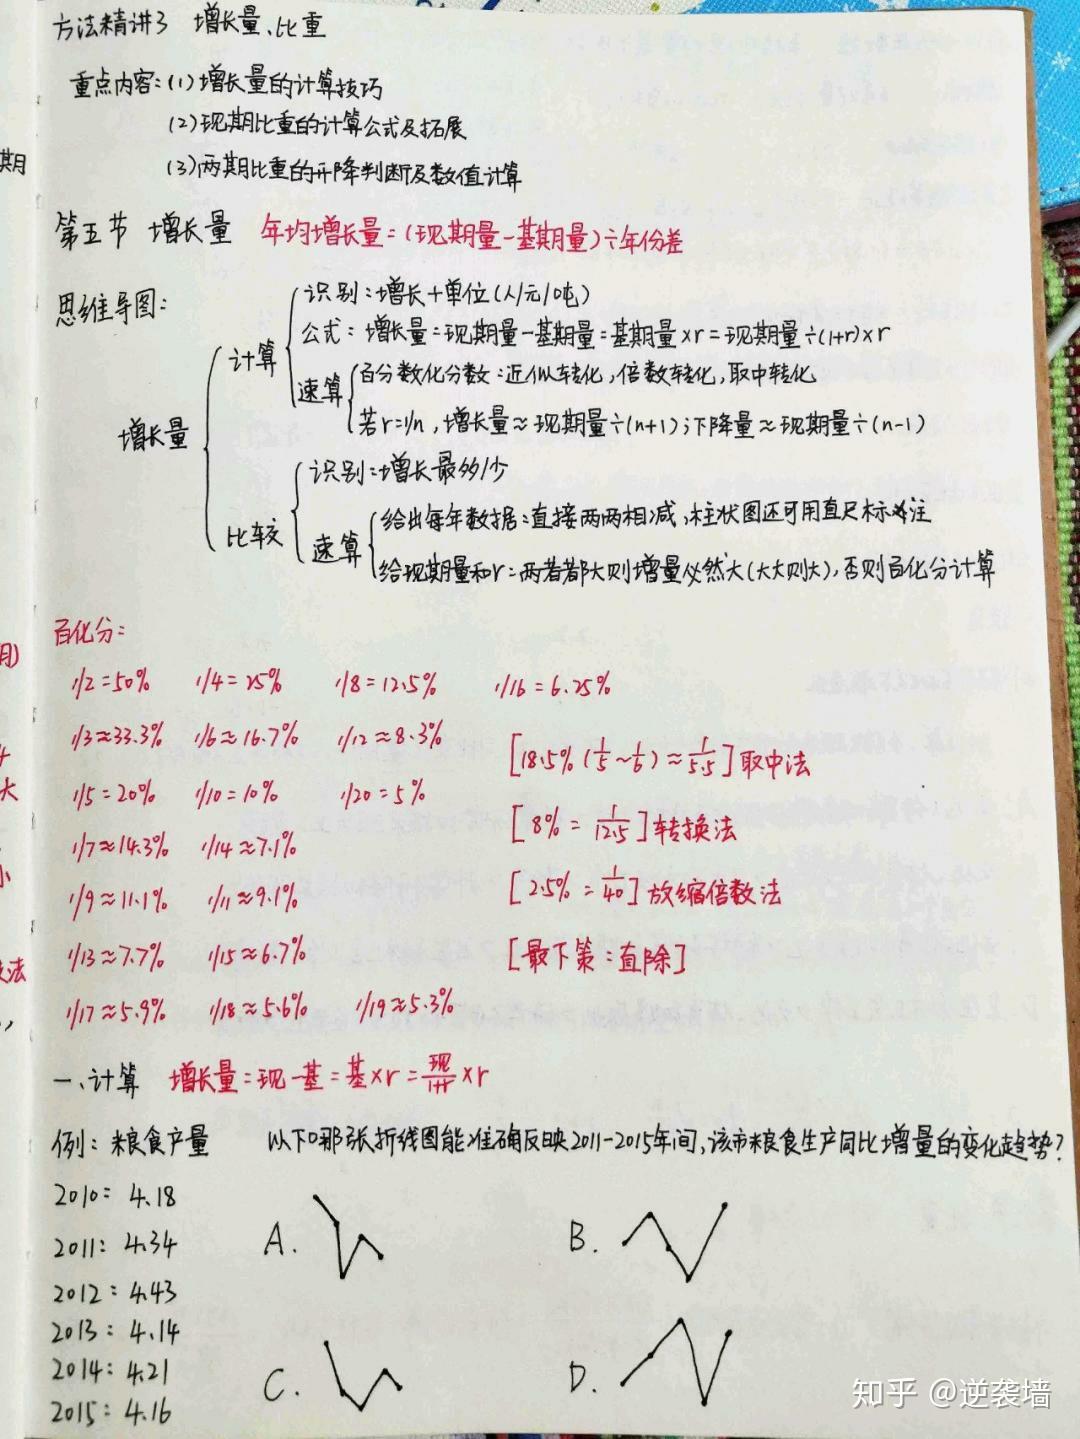 方法精讲3 增长量、比重
重点内容:(1)增长量的计算技巧
(2)现期比重的计算公式及拓展
(3)两期比重的升降判断及数值计算
期
第五节 增长量 年均增长量=(现期量-基期量)÷年份差
思维导图:
识别:增长+单位(人/元/吨)
公式:增长量=现期量-基期量=基期量×r=现期量÷(1+r)×r
计算
速算
百分数化分数:近似转化,倍数转化,取中转化
若r=1/n,增长量≈现期量÷(n+1);下降量≈现期量÷(n-1)
增长量
识别:增长最多/少
比较
速算
给出每年数据:直接两两相减,柱状图还可用直尺标注
给现期量和r:两者都大则增量必然大(大大则大),否则百化分计算
百化分:
1/2=50% 1/4=25% 1/8=12.5% 1/16=6.25%
1/3≈33.3% 1/6≈16.7% 1/12≈8.3%
[18.5%(1/5~1/6)≈1/5.5]取中法
1/5=20% 1/10=10% 1/20=5%
大
[8%=1/12.5]转换法
1/7≈14.3% 1/14≈7.1%
小
1/9≈11.1% 1/11≈9.1%
[2.5%=1/40]放缩倍数法
1/13≈7.7% 1/15≈6.7%
[最下策:直除]
法
1/17≈5.9% 1/18≈5.6% 1/19≈5.3%
一、计算 增长量=现-基=基×r=现/1+r×r
例:粮食产量 以下哪张折线图能准确反映2011-2015年间,该市粮食生产同比增量的变化趋势?
2010:4.18
2011:4.34
A. B.
2012:4.43
2013:4.14
2014:4.21
C. D.
2015:4.16
知乎 @逆袭墙